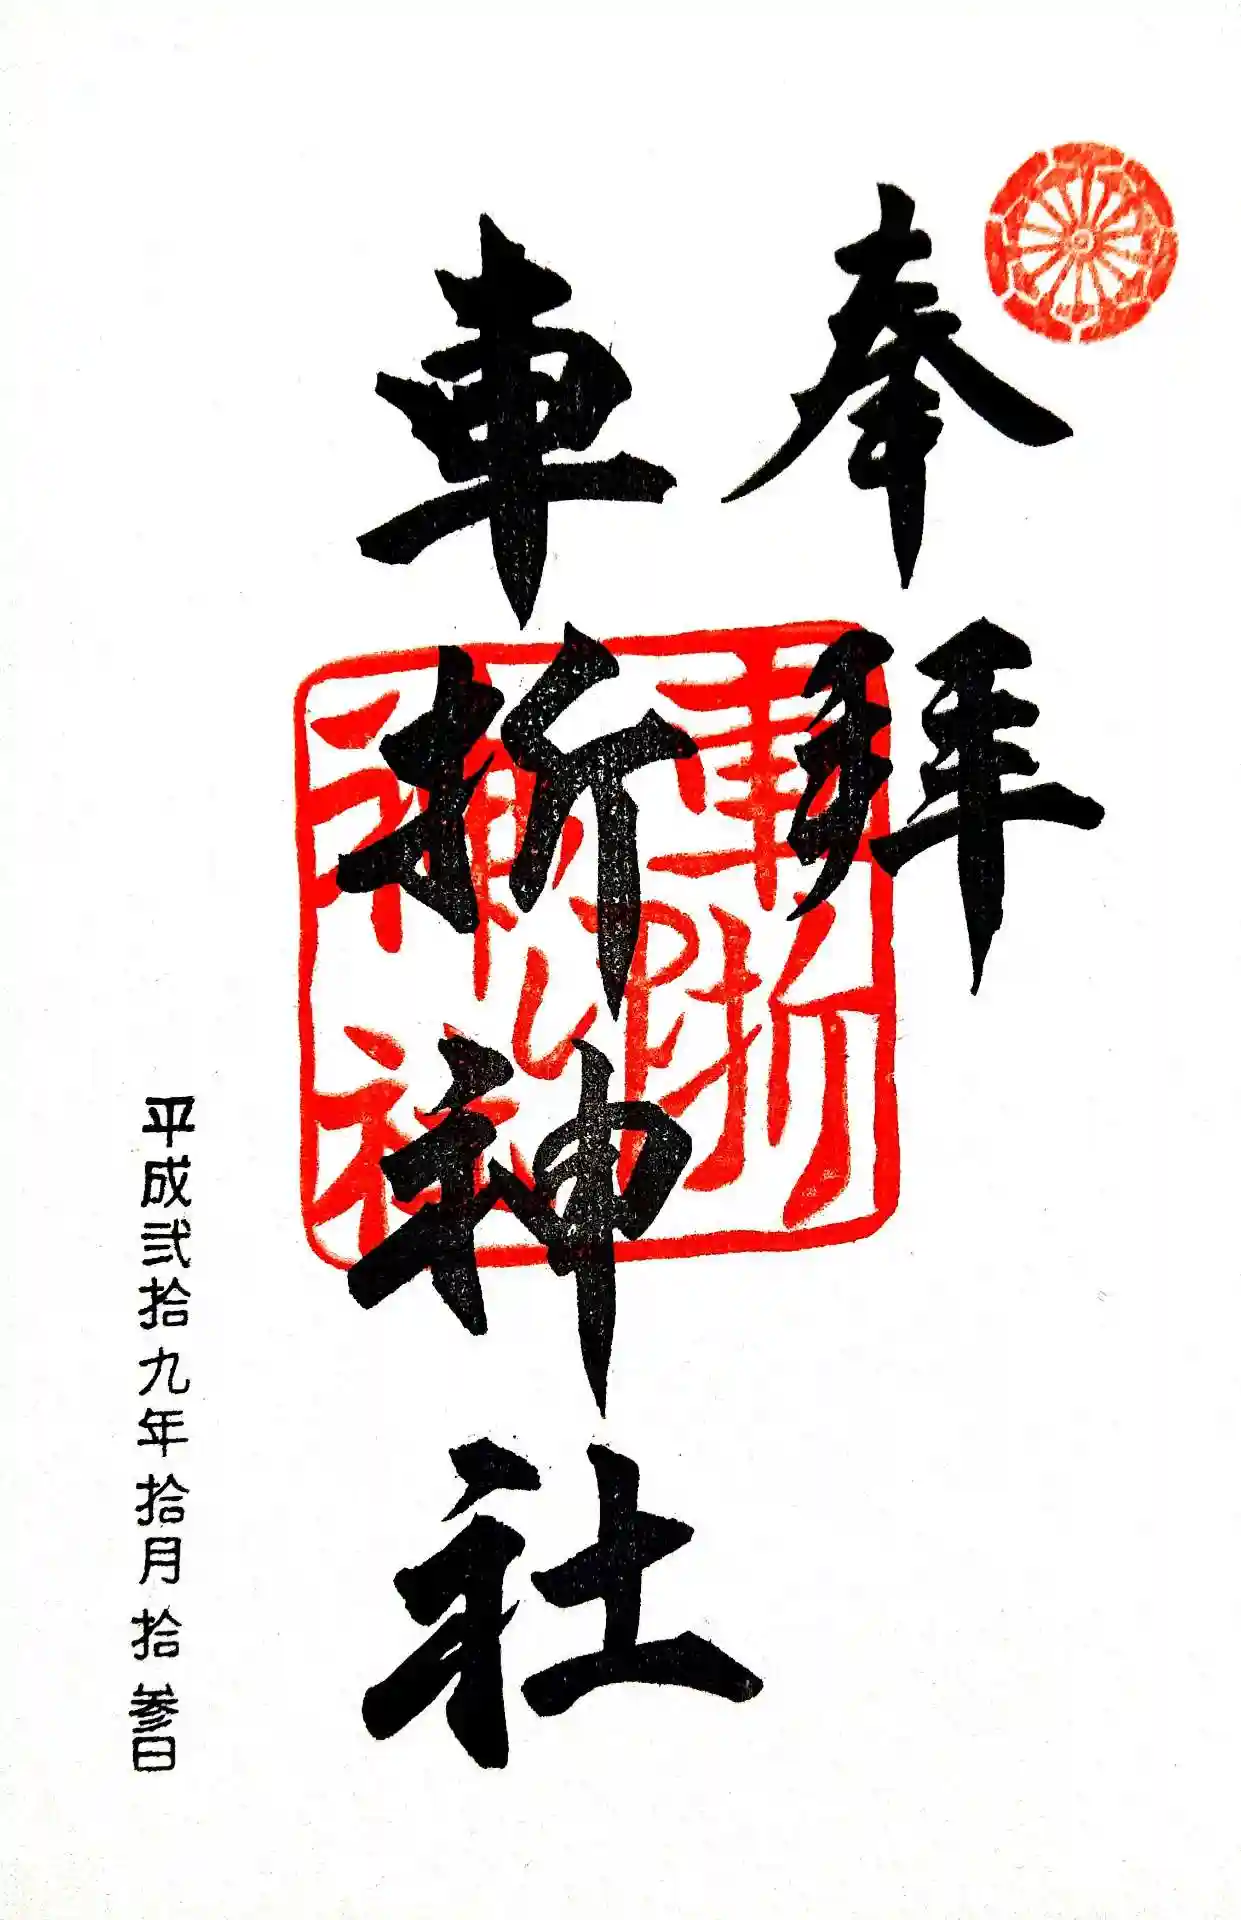 奉拝
車折神社
車折
神社
平成弐拾九年拾月拾参日